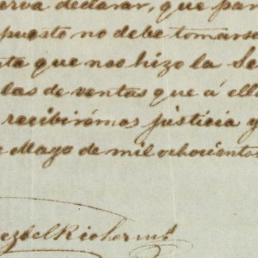 erva declarar, que par
puesto no debe tomarse
ta que nos hizo la Se
las de ventas que á ella
recibirémos justicia y
e Mayo de mil ochocientos